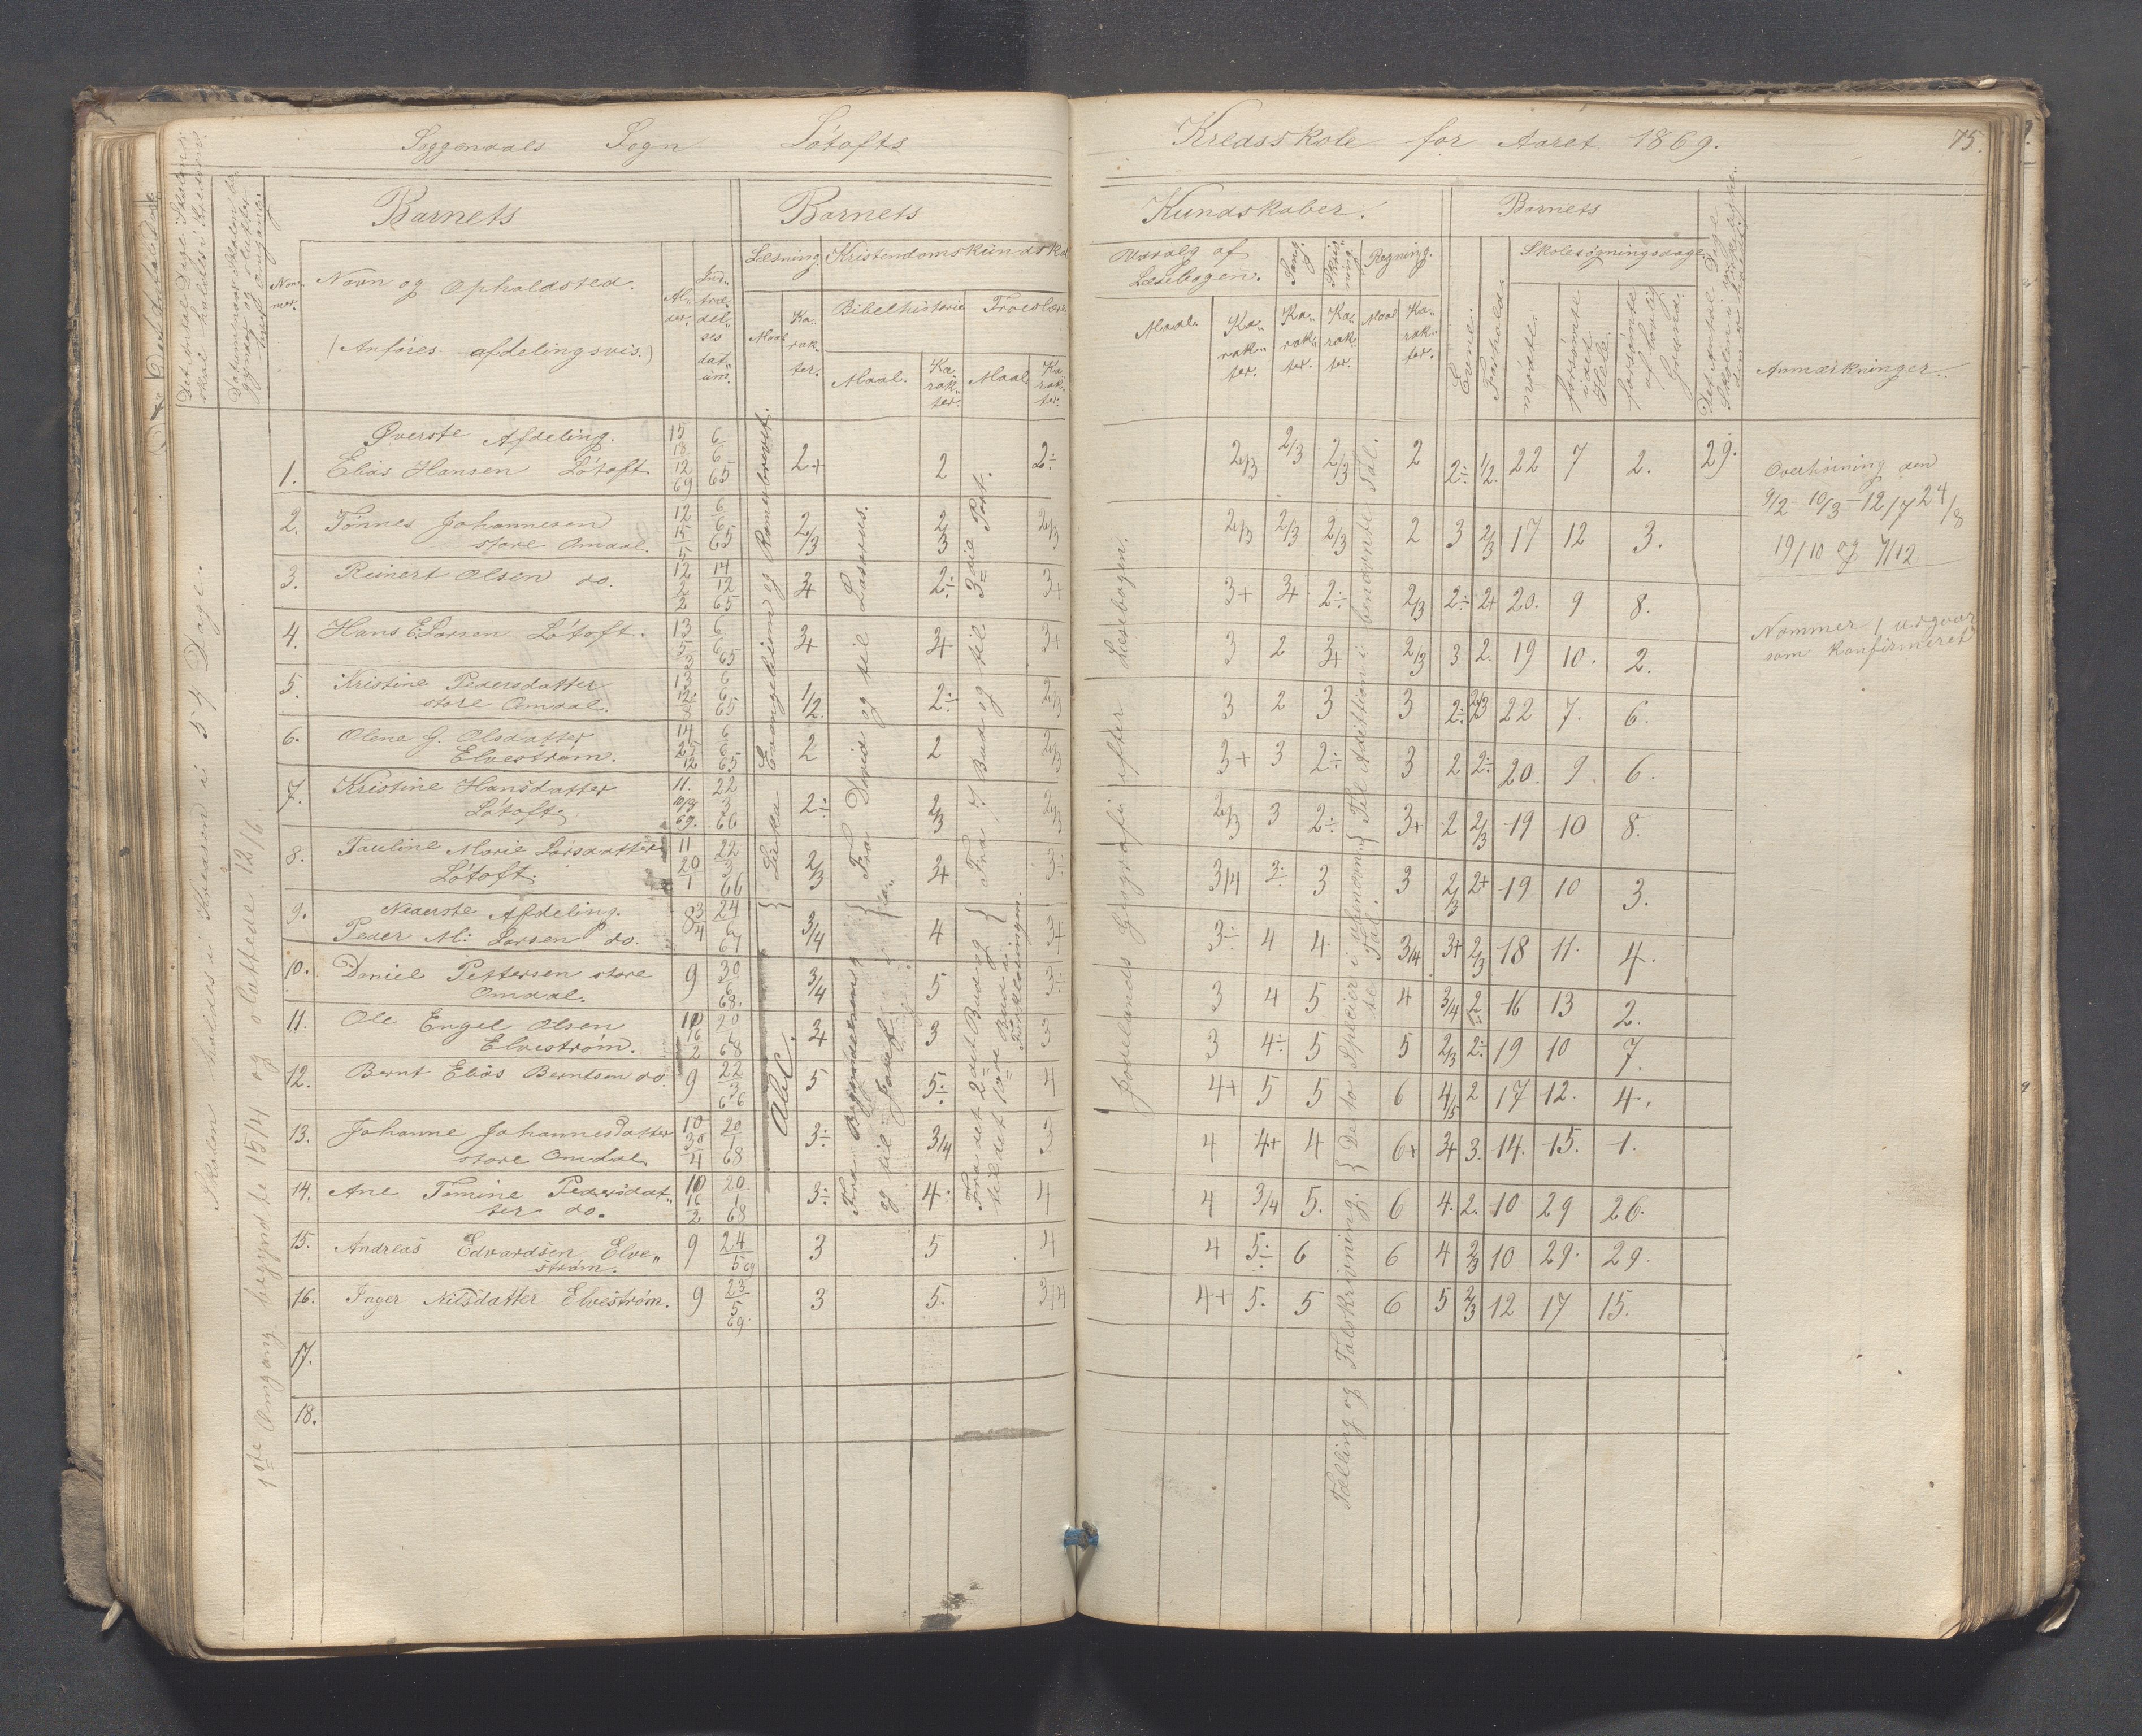 Soggendals Sogn Løtofts Kredsskole for Aaret 1869. 75.
Barnets Barnets Kundskaber. Barnets
Det Antal Dage Skolen
skal holdes i Kredsen.
Datum naar Skolen be-
gynder og slutter
hver Omgang.
Num-
mer.
Navn og Opholdsted.
(Anføres afdelingsvis.)
Al-
der.
Ind-
træ-
del-
ses
dat-
um.
Læsning. Kristendomskundskab
Maal. Ka-
rak-
ter.
Bibelhistorie Troeslære
Maal. Ka-
rak-
ter.
Maal. Ka-
rak-
ter.
Udvalg af
Læsebogen.
Sang. Skriv-
ning. Regning.
Maal. Ka-
rak-
ter.
Ka-
rak-
ter.
Ka-
rak-
ter.
Maal Ka-
rak-
ter.
Evne. Forhold.
Skolesøgningsdage.
mødte. forsømte
i det
Hele. forsømte
af lovlig
Grund.
Det Antal Dage
Anmærkninger.
Skolen holdes i Kredsen i 54 Dage.
1ste Omgang begyndte 15/4 og sluttede 12/6.
Øverste Afdeling.
1. Elias Hansen Løtoft 15 18/12 69 6/6 65 2+ 2 2÷ 2/3 2/3 2/3 2 2÷ 1/2. 22 7 2. 29.
2. Tønnes Johannesen
store Omdal. 12 15/5 6/6 65 2/3 2/3 2/3 2/3 2/3 2/3 2 3 2/3 17 12 3.
3. Reinert Olsen do. 12 2/2 14/12 65 3+ 2÷ 3+ 3+ 3+ 2÷ 2/3 2÷ 2+ 20. 9 8.
4. Hans E Larsen Løtoft. 13 5/3 6/6 65 3+ 3+ 3+ 3 2 3+ 2/3 3 2. 19 10. 2.
5. Kristine Pedersdatter
store Omdal. 13 12/3 6/6 65 1/2. 2÷ 2/3 3 2 3 3 2÷ 2/3 22 7. 6.
6. Olene G. Olsdatter
Elvestrøm. 14 25/12 6/6 65 2 2 2/3 3+ 3 2÷ 3 2 2÷ 20. 9. 6.
7. Kristine Hansdatter
Løtoft. 11. 10/3 69. 22/3 66 2÷ 2/3 2/3 2/3 3 2÷ 3+ 2 2/3 19 10 8.
8. Pauline Marie Larsdatter
Løtoft. 11 20/1 22/3 66 2/3 3+ 3÷ 3/4 2÷ 3 3 2/3 2+ 19 10 3.
Nederste Afdeling.
9. Peder M: Larsen do. 8 3/4 24/6 67 3/4 4 3+ 3÷ 4 4. 3/4 3+ 2/3 18 11. 4.
10. Daniel Pettersen store
Omdal. 9 30/6 68. 3/4 5. 3÷ 3 4 5 4 3/4 2÷ 16 13 2.
11. Ole Engel Olsen
Elvestrøm. 10 16/2 20/1 68 3+ 3 3 3 4÷ 5 5 2/3 2÷ 19 10 7.
12. Bernt Elias Berntsen do. 9 22/3 66 5 5÷ 4 4+ 5 5 6 4/5 2 17 12. 4.
13. Johanne Johannesdatter
store Omdal. 10 30/4 20/1 68 3÷ 3/4 3 4 4+ 4 6+ 3+ 3. 14. 15. 1.
14. Ane Temine Pedersdat-
ter do. 10 16/2 20/1 68 3÷ 4. 4 4 3/4 5. 6 4. 2. 10 29 26.
15. Andreas Edvardsen Elve-
strøm. 9 24/5 69 3 5 4 4 5÷ 6 6 4 2/3 10 29. 29.
16. Inger Nilsdatter Elvestrøm. 9 23/5 69. 3 5. 3/4 4+ 5. 5 6 5 2/3 12 17 15.
17.
18.
Lukas Evangelium og Romerbrevet.
AbC.
Fra David og til Lasarus.
Fra Begyndelsen
og til Josef
Fra 7 Bud og til 3die Part.
Fra det 2det Bud og
til det 10de Bud i
Forklaringen.
Jordelands Geografi efter Læsebogen.
Til Addition i benævnte Tal.
De to Speccier i ubenævn-
te Tal.
Tælling og Talskrivning.
Overhøring den
9/2 - 10/3 - 12/7 24/8
19/10 og 7/12.
Nommer 1 udgaar
som konfirmeret